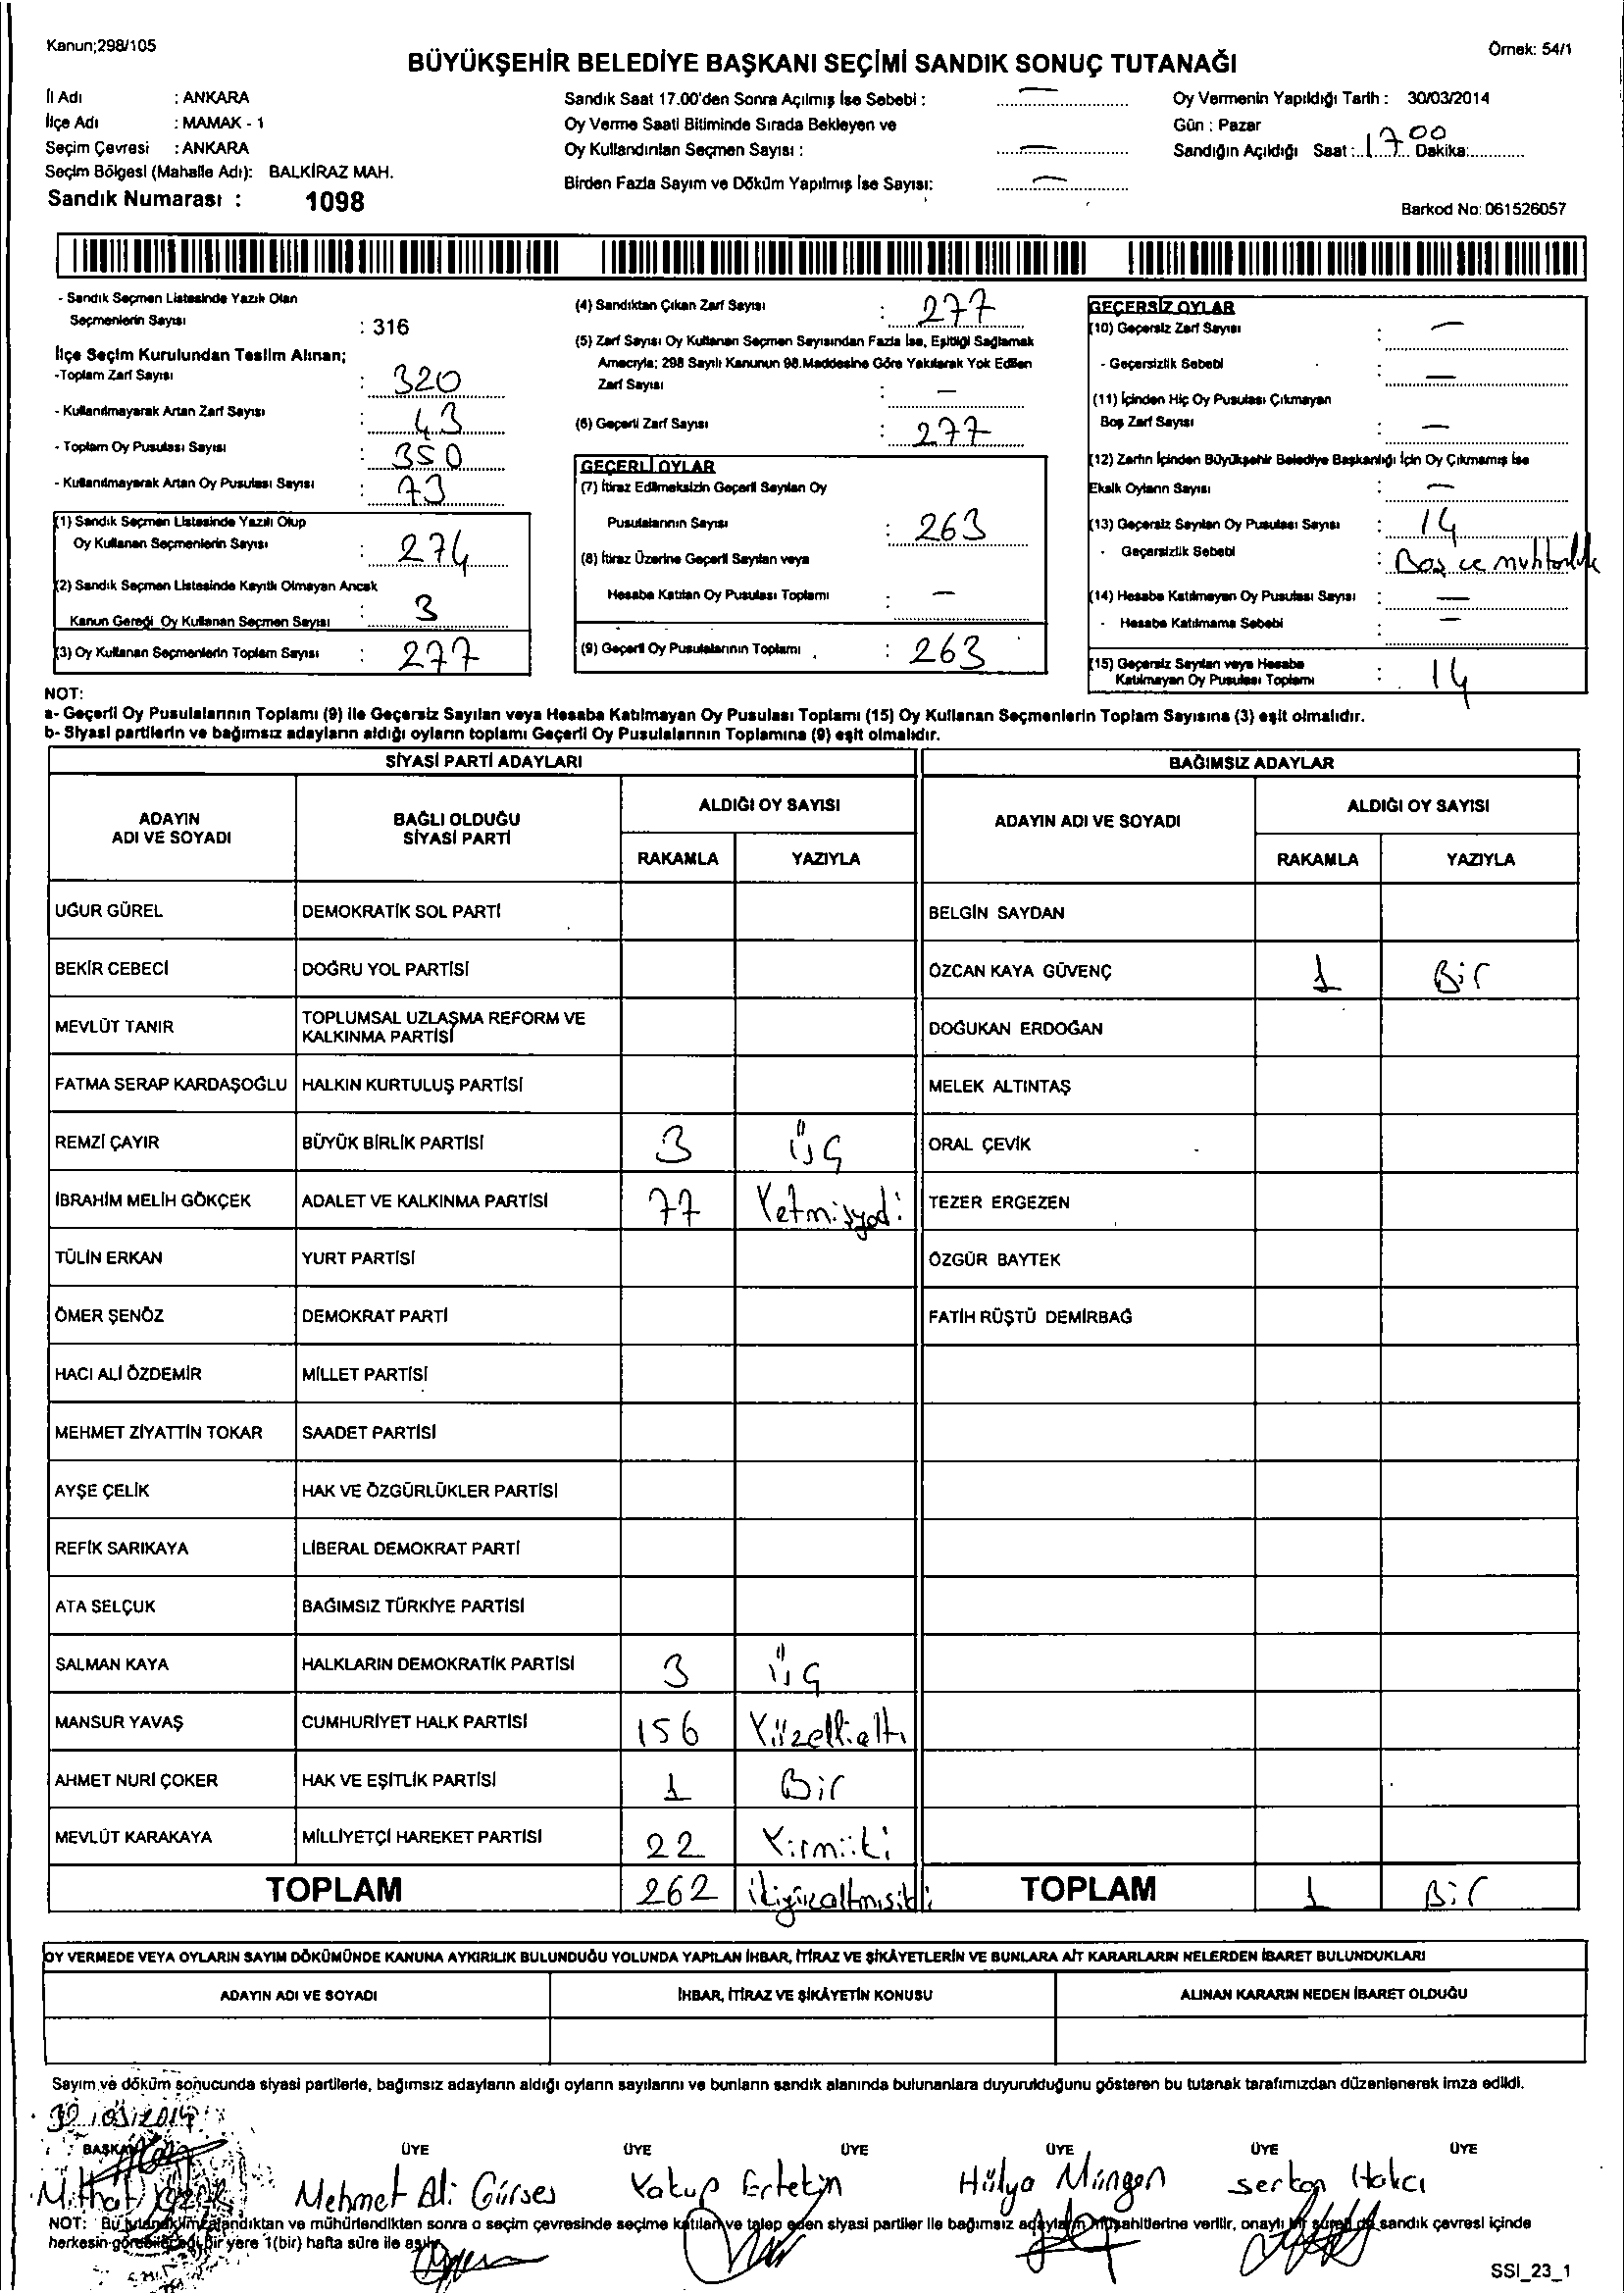 Kanun;298/105
Örnek: 54/1
BÜYÜKŞEHİR BELEDİYE BAŞKANI SEÇİMİ SANDIK SONUÇ TUTANAĞI
İl Adı : ANKARA
İlçe Adı : MAMAK - 1
Seçim Çevresi : ANKARA
Seçim Bölgesi (Mahalle Adı): BALKİRAZ MAH.
Sandık Numarası : 1098
Sandık Saat 17.00'den Sonra Açılmış İse Sebebi : —
Oy Verme Saati Bitiminde Sırada Bekleyen ve
Oy Kullandırılan Seçmen Sayısı : —
Birden Fazla Sayım ve Döküm Yapılmış İse Sayısı: —
Oy Vermenin Yapıldığı Tarih : 30/03/2014
Gün : Pazar
Sandığın Açıldığı Saat : 17 Dakika: 00
Barkod No: 061526057
- Sandık Seçmen Listesinde Yazılı Olan
Seçmenlerin Sayısı : 316
İlçe Seçim Kurulundan Teslim Alınan;
-Toplam Zarf Sayısı : 320
- Kullanılmayarak Artan Zarf Sayısı : 43
- Toplam Oy Pusulası Sayısı : 350
- Kullanılmayarak Artan Oy Pusulası Sayısı : 73
(1) Sandık Seçmen Listesinde Yazılı Olup
Oy Kullanan Seçmenlerin Sayısı : 274
(2) Sandık Seçmen Listesinde Kayıtlı Olmayan Ancak
Kanun Gereği Oy Kullanan Seçmen Sayısı : 3
(3) Oy Kullanan Seçmenlerin Toplam Sayısı : 277
(4) Sandıktan Çıkan Zarf Sayısı : 277
(5) Zarf Sayısı Oy Kullanan Seçmen Sayısından Fazla İse, Eşitliği Sağlamak
Amacıyla; 298 Sayılı Kanunun 98.Maddesine Göre Yakılarak Yok Edilen
Zarf Sayısı : —
(6) Geçerli Zarf Sayısı : 277
GEÇERLİ OYLAR
(7) İtiraz Edilmeksizin Geçerli Sayılan Oy
Pusulalarının Sayısı : 263
(8) İtiraz Üzerine Geçerli Sayılan veya
Hesaba Katılan Oy Pusulası Toplamı : —
(9) Geçerli Oy Pusulalarının Toplamı : 263
GEÇERSİZ OYLAR
(10) Geçersiz Zarf Sayısı : —
- Geçersizlik Sebebi : —
(11) İçinden Hiç Oy Pusulası Çıkmayan
Boş Zarf Sayısı : —
(12) Zarfın İçinden Büyükşehir Belediye Başkanlığı İçin Oy Çıkmamış İse
Eksik Oyların Sayısı : —
(13) Geçersiz Sayılan Oy Pusulası Sayısı : 14
- Geçersizlik Sebebi : Boş ve muhtarlık
(14) Hesaba Katılmayan Oy Pusulası Sayısı : —
- Hesaba Katılmama Sebebi : —
(15) Geçersiz Sayılan veya Hesaba
Katılmayan Oy Pusulası Toplamı : 14
NOT:
a- Geçerli Oy Pusulalarının Toplamı (9) ile Geçersiz Sayılan veya Hesaba Katılmayan Oy Pusulası Toplamı (15) Oy Kullanan Seçmenlerin Toplam Sayısına (3) eşit olmalıdır.
b- Siyasi partilerin ve bağımsız adayların aldığı oyların toplamı Geçerli Oy Pusulalarının Toplamına (9) eşit olmalıdır.
SİYASİ PARTİ ADAYLARI
BAĞIMSIZ ADAYLAR
ADAYIN ADI VE SOYADI
BAĞLI OLDUĞU SİYASİ PARTİ
ALDIĞI OY SAYISI
RAKAMLA YAZIYLA
ADAYIN ADI VE SOYADI
ALDIĞI OY SAYISI
RAKAMLA YAZIYLA
UĞUR GÜREL DEMOKRATİK SOL PARTİ BELGİN SAYDAN
BEKİR CEBECİ DOĞRU YOL PARTİSİ ÖZCAN KAYA GÜVENÇ 1 Bir
MEVLÜT TANIR TOPLUMSAL UZLAŞMA REFORM VE KALKINMA PARTİSİ DOĞUKAN ERDOĞAN
FATMA SERAP KARDAŞOĞLU HALKIN KURTULUŞ PARTİSİ MELEK ALTINTAŞ
REMZİ ÇAYIR BÜYÜK BİRLİK PARTİSİ 3 üç ORAL ÇEVİK
İBRAHİM MELİH GÖKÇEK ADALET VE KALKINMA PARTİSİ 77 Yetmişyedi TEZER ERGEZEN
TÜLİN ERKAN YURT PARTİSİ ÖZGÜR BAYTEK
ÖMER ŞENÖZ DEMOKRAT PARTİ FATİH RÜŞTÜ DEMİRBAĞ
HACI ALİ ÖZDEMİR MİLLET PARTİSİ
MEHMET ZİYATTİN TOKAR SAADET PARTİSİ
AYŞE ÇELİK HAK VE ÖZGÜRLÜKLER PARTİSİ
REFİK SARIKAYA LİBERAL DEMOKRAT PARTİ
ATA SELÇUK BAĞIMSIZ TÜRKİYE PARTİSİ
SALMAN KAYA HALKLARIN DEMOKRATİK PARTİSİ 3 üç
MANSUR YAVAŞ CUMHURİYET HALK PARTİSİ 156 Yüzellialtı
AHMET NURİ ÇOKER HAK VE EŞİTLİK PARTİSİ 1 Bir
MEVLÜT KARAKAYA MİLLİYETÇİ HAREKET PARTİSİ 22 Yirmiiki
TOPLAM 262 ikiyüzaltmışiki TOPLAM 1 Bir
OY VERMEDE VEYA OYLARIN SAYIM DÖKÜMÜNDE KANUNA AYKIRILIK BULUNDUĞU YOLUNDA YAPILAN İHBAR, İTİRAZ VE ŞİKÂYETLERİN VE BUNLARA AİT KARARLARIN NELERDEN İBARET BULUNDUKLARI
ADAYIN ADI VE SOYADI İHBAR, İTİRAZ VE ŞİKÂYETİN KONUSU ALINAN KARARIN NEDEN İBARET OLDUĞU
Sayım ve döküm sonucunda siyasi partilerle, bağımsız adayların aldığı oyların sayılarını ve bunların sandık alanında bulunanlara duyurulduğunu gösteren bu tutanak tarafımızdan düzenlenerek imza edildi.
30/03/2014
BAŞKAN ÜYE ÜYE ÜYE ÜYE ÜYE ÜYE
Mithat Mehmet Ali Gürses Yakup Ertekin Hülya Müngen Serkan Hakcı
NOT: Bu tutanak imzalandıktan ve mühürlendikten sonra o seçim çevresinde seçime katılan ve talep eden siyasi partiler ile bağımsız adayların müşahitlerine verilir, onaylı bir sureti de sandık çevresi içinde
herkesin görebileceği bir yere 1(bir) hafta süre ile asılır.
SSI_23_1